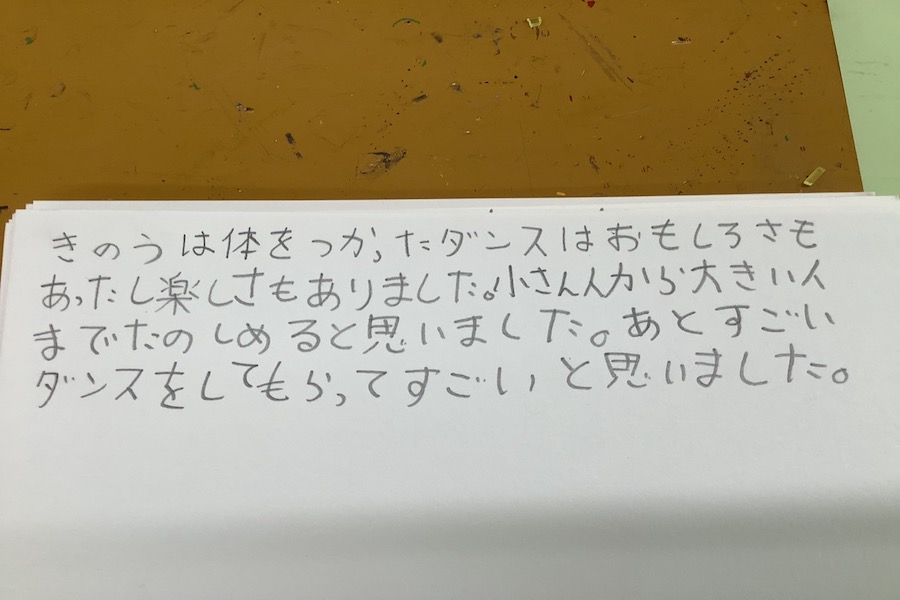 きのうは体をつかったダンスはおもしろさも
あったし楽しさもありました。小さん人から大きい人
までたのしめると思いました。あとすごい
ダンスをしてもらってすごいと思いました。